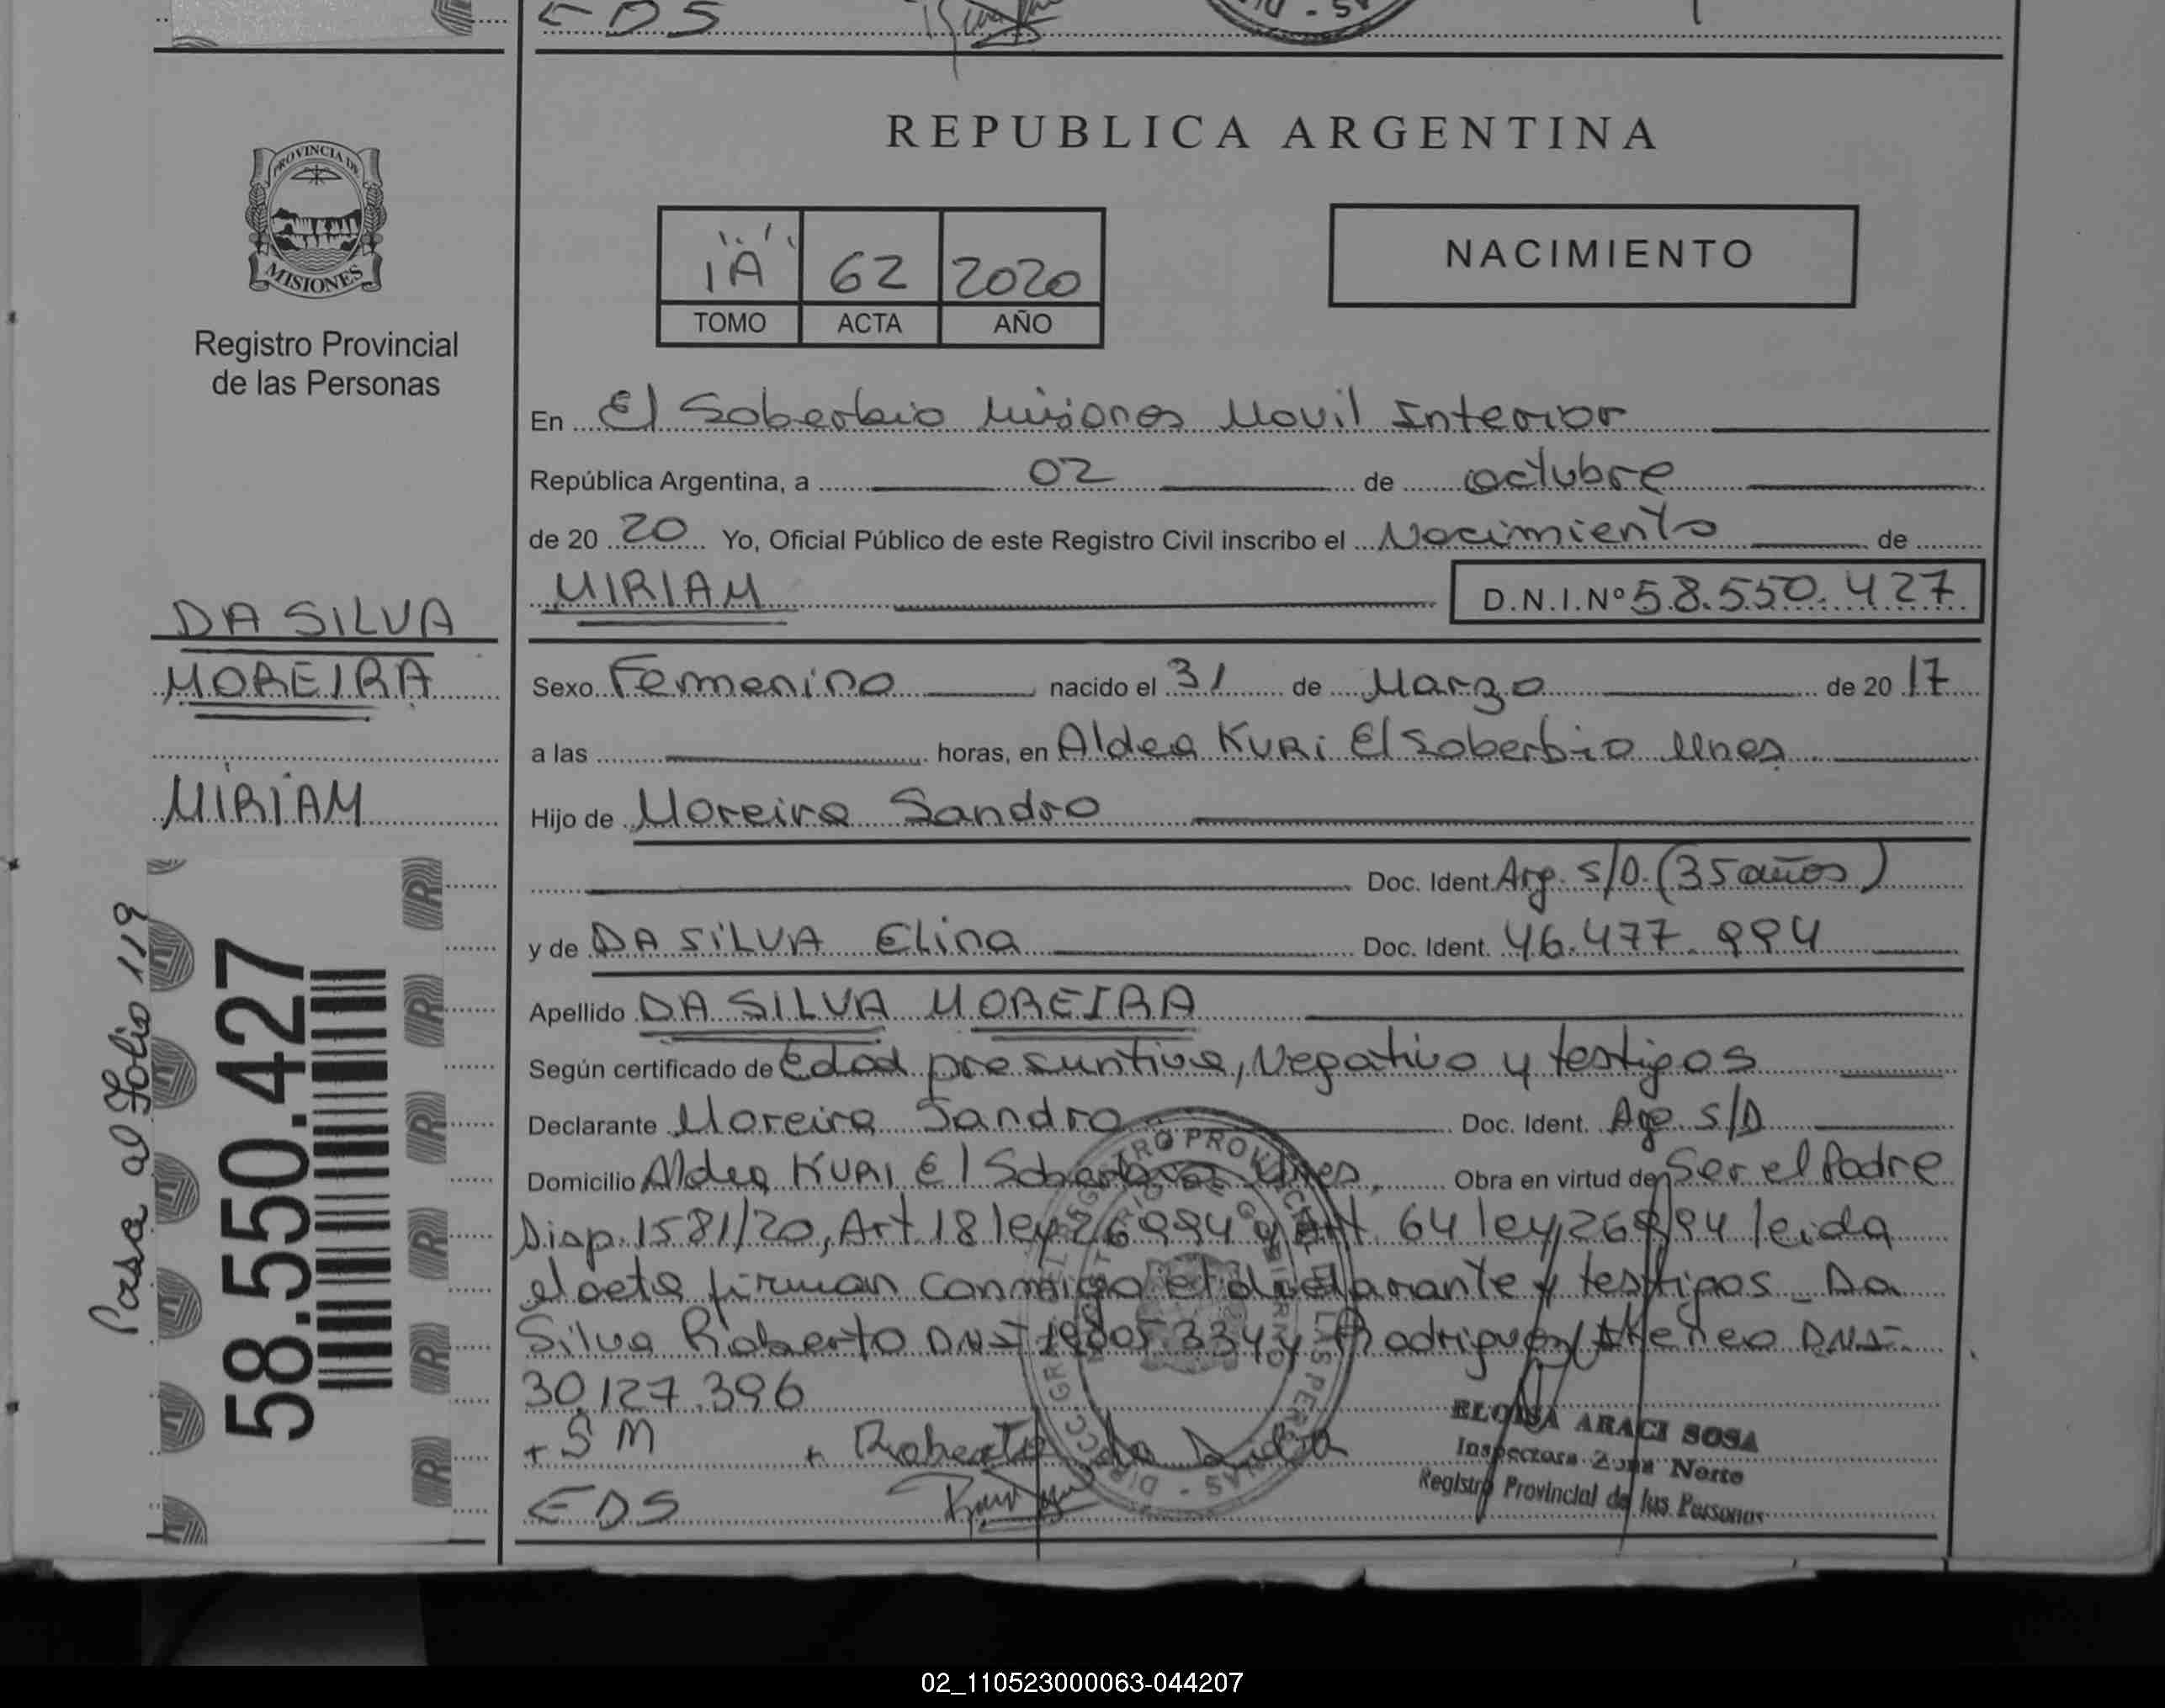 EDS
REPUBLICA ARGENTINA
PROVINCIA DE
MISIONES
Registro Provincial
de las Personas
"1A" 62 2020
TOMO ACTA AÑO
NACIMIENTO
En El Soberbio Misiones Movil Interior
República Argentina, a 02 de octubre
de 20 20 Yo, Oficial Público de este Registro Civil inscribo el Nacimiento de
MIRIAM D.N.I.Nº 58.550.427
DA SILVA
MOREIRA
MIRIAM
Sexo Femenino nacido el 31 de Marzo de 20 17
a las horas, en Aldea KURI El Soberbio Mnes
Hijo de Moreira Sandro
Doc. Ident. Arg. S/D. (35 años)
y de DA SILVA Elina Doc. Ident. 46.477.994
Apellido DA SILVA MOREIRA
Según certificado de Edad presuntiva, Negativo y testigos
Declarante Moreira Sandro Doc. Ident. Arg S/D
Domicilio Aldea KURI El Soberbio Mnes, Obra en virtud de Ser el Padre
Disp. 1581/20, Art 18 ley 26994 y Art. 64 ley 26994 leida
el acta firman conmigo el declarante y testigos _ Da
Silva Roberto DNI y Rodriguez DNI.
30.127.396
+ S M + Roberto da
EDS
ELOISA ARACI SOSA
Inspectora Zona Norte
Registro Provincial de las Personas
Pasa al Folio 119
58.550.427
02_110523000063-044207